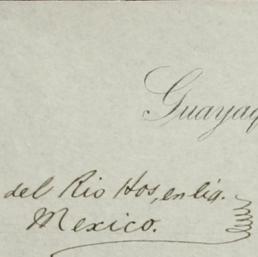 Guayaq
del Rio Hos, en liq.
Mexico.